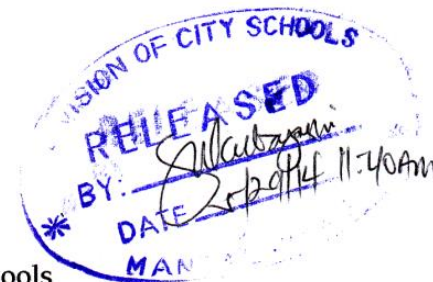 VISION OF CITY SCHOOLS
RELEASED
BY:
DATE 11:40AM
* MAN
ools